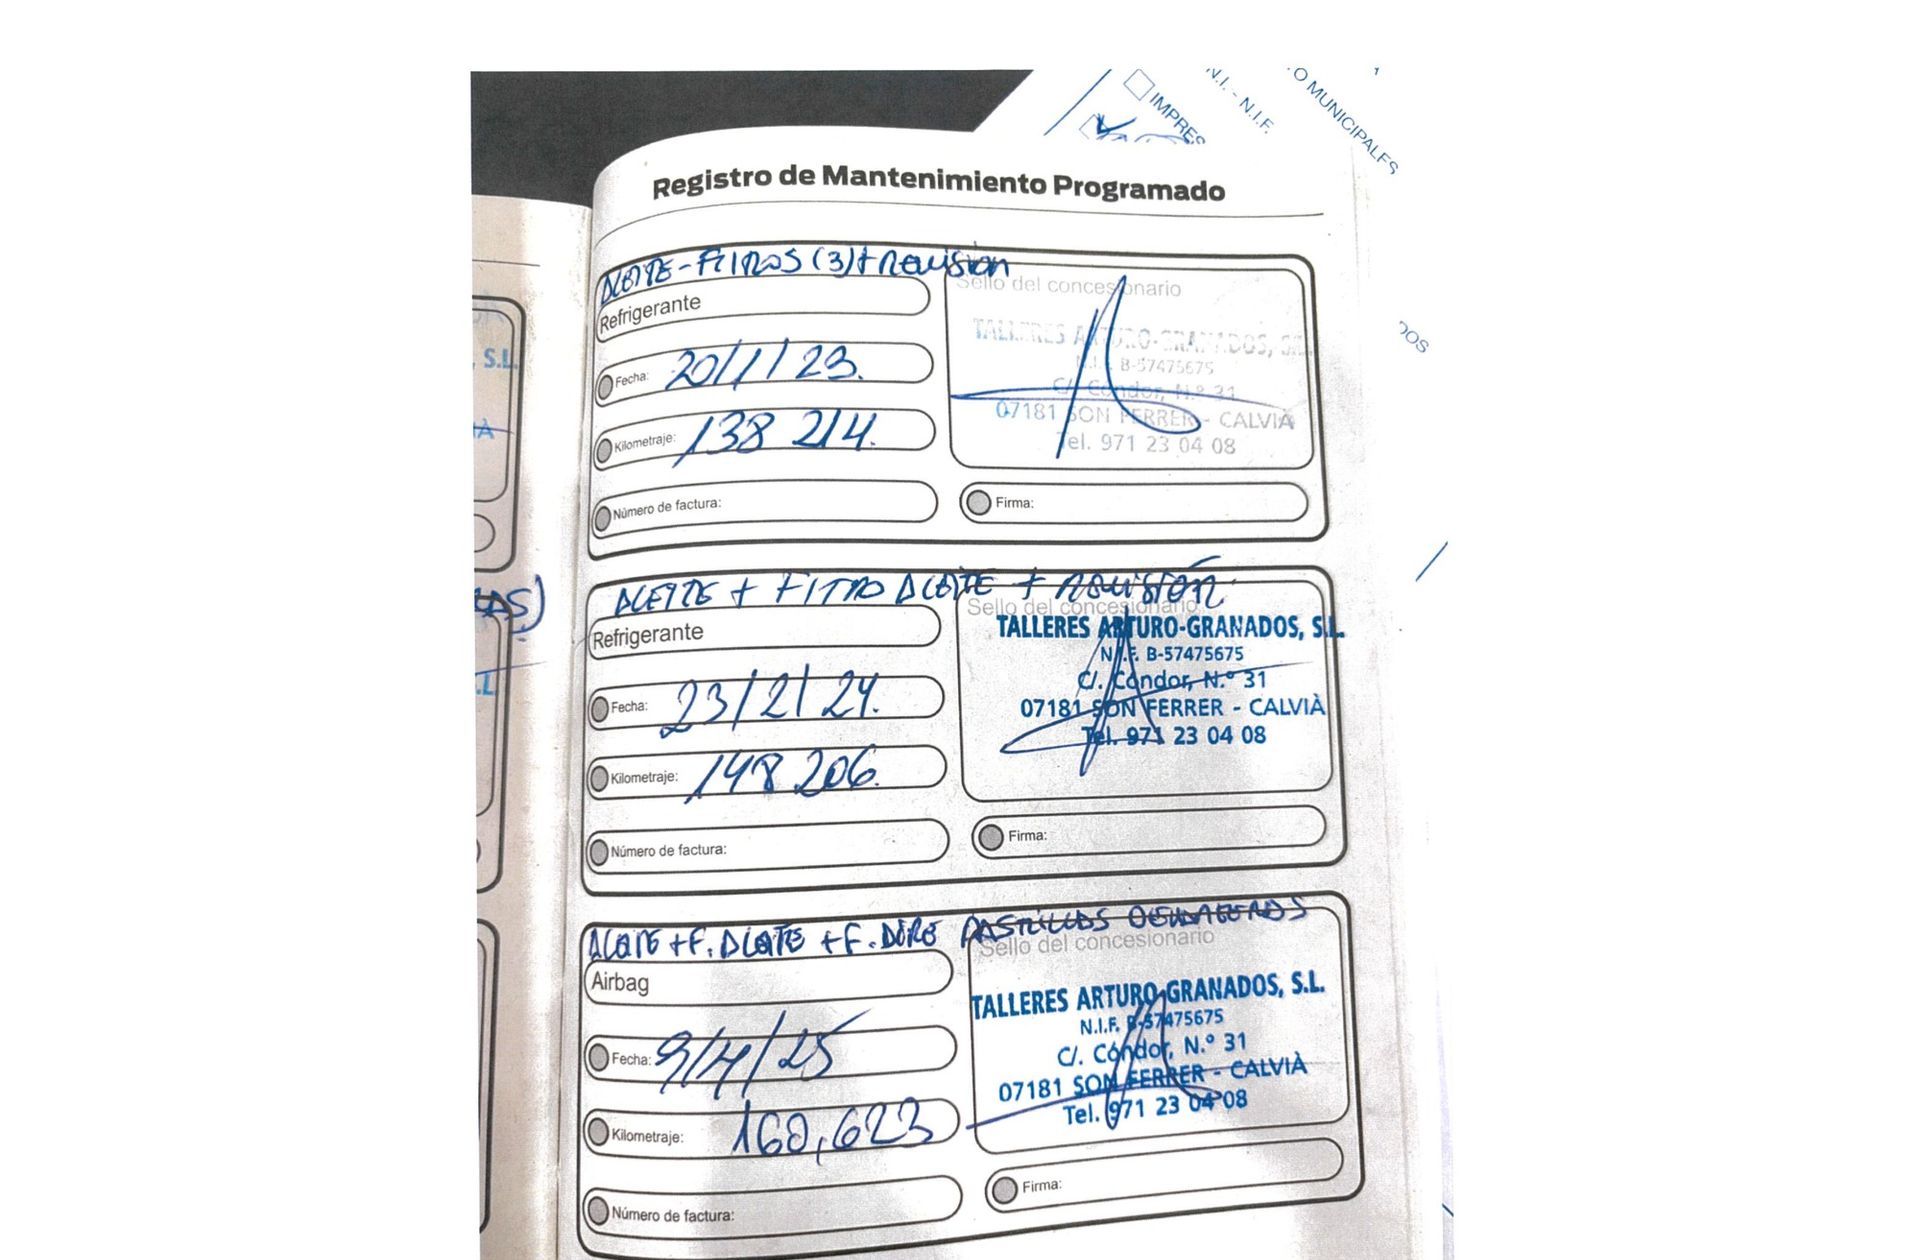 IMPRES
N.I. - N.I.F.
O MUNICIPALES
Registro de Mantenimiento Programado
ACEITE - FILTROS (3) + REVISIÓN
Sello del concesionario
Refrigerante
TALLERES ARTURO-GRANADOS, S.L.
N.I.F. B-57475675
C/. Cóndor, N.º 31
07181 SON FERRER - CALVIÀ
Tel. 971 23 04 08
Fecha: 20/1/23.
Kilometraje: 138 214.
Número de factura:
Firma:
S.L.
DOS
ACEITE + FILTRO ACEITE + REVISIÓN.
Sello del concesionario
Refrigerante
TALLERES ARTURO-GRANADOS, S.L.
N.I.F. B-57475675
C/. Cóndor, N.º 31
07181 SON FERRER - CALVIÀ
Tel. 971 23 04 08
Fecha: 23/2/24.
Kilometraje: 148 206.
Número de factura:
Firma:
ACEITE + F. ACEITE + F. AIRE PASTILLAS DELANTERAS
Sello del concesionario
Airbag
TALLERES ARTURO-GRANADOS, S.L.
N.I.F. B-57475675
C/. Cóndor, N.º 31
07181 SON FERRER - CALVIÀ
Tel. 971 23 04 08
Fecha: 9/4/25
Kilometraje: 160,623
Número de factura:
Firma: